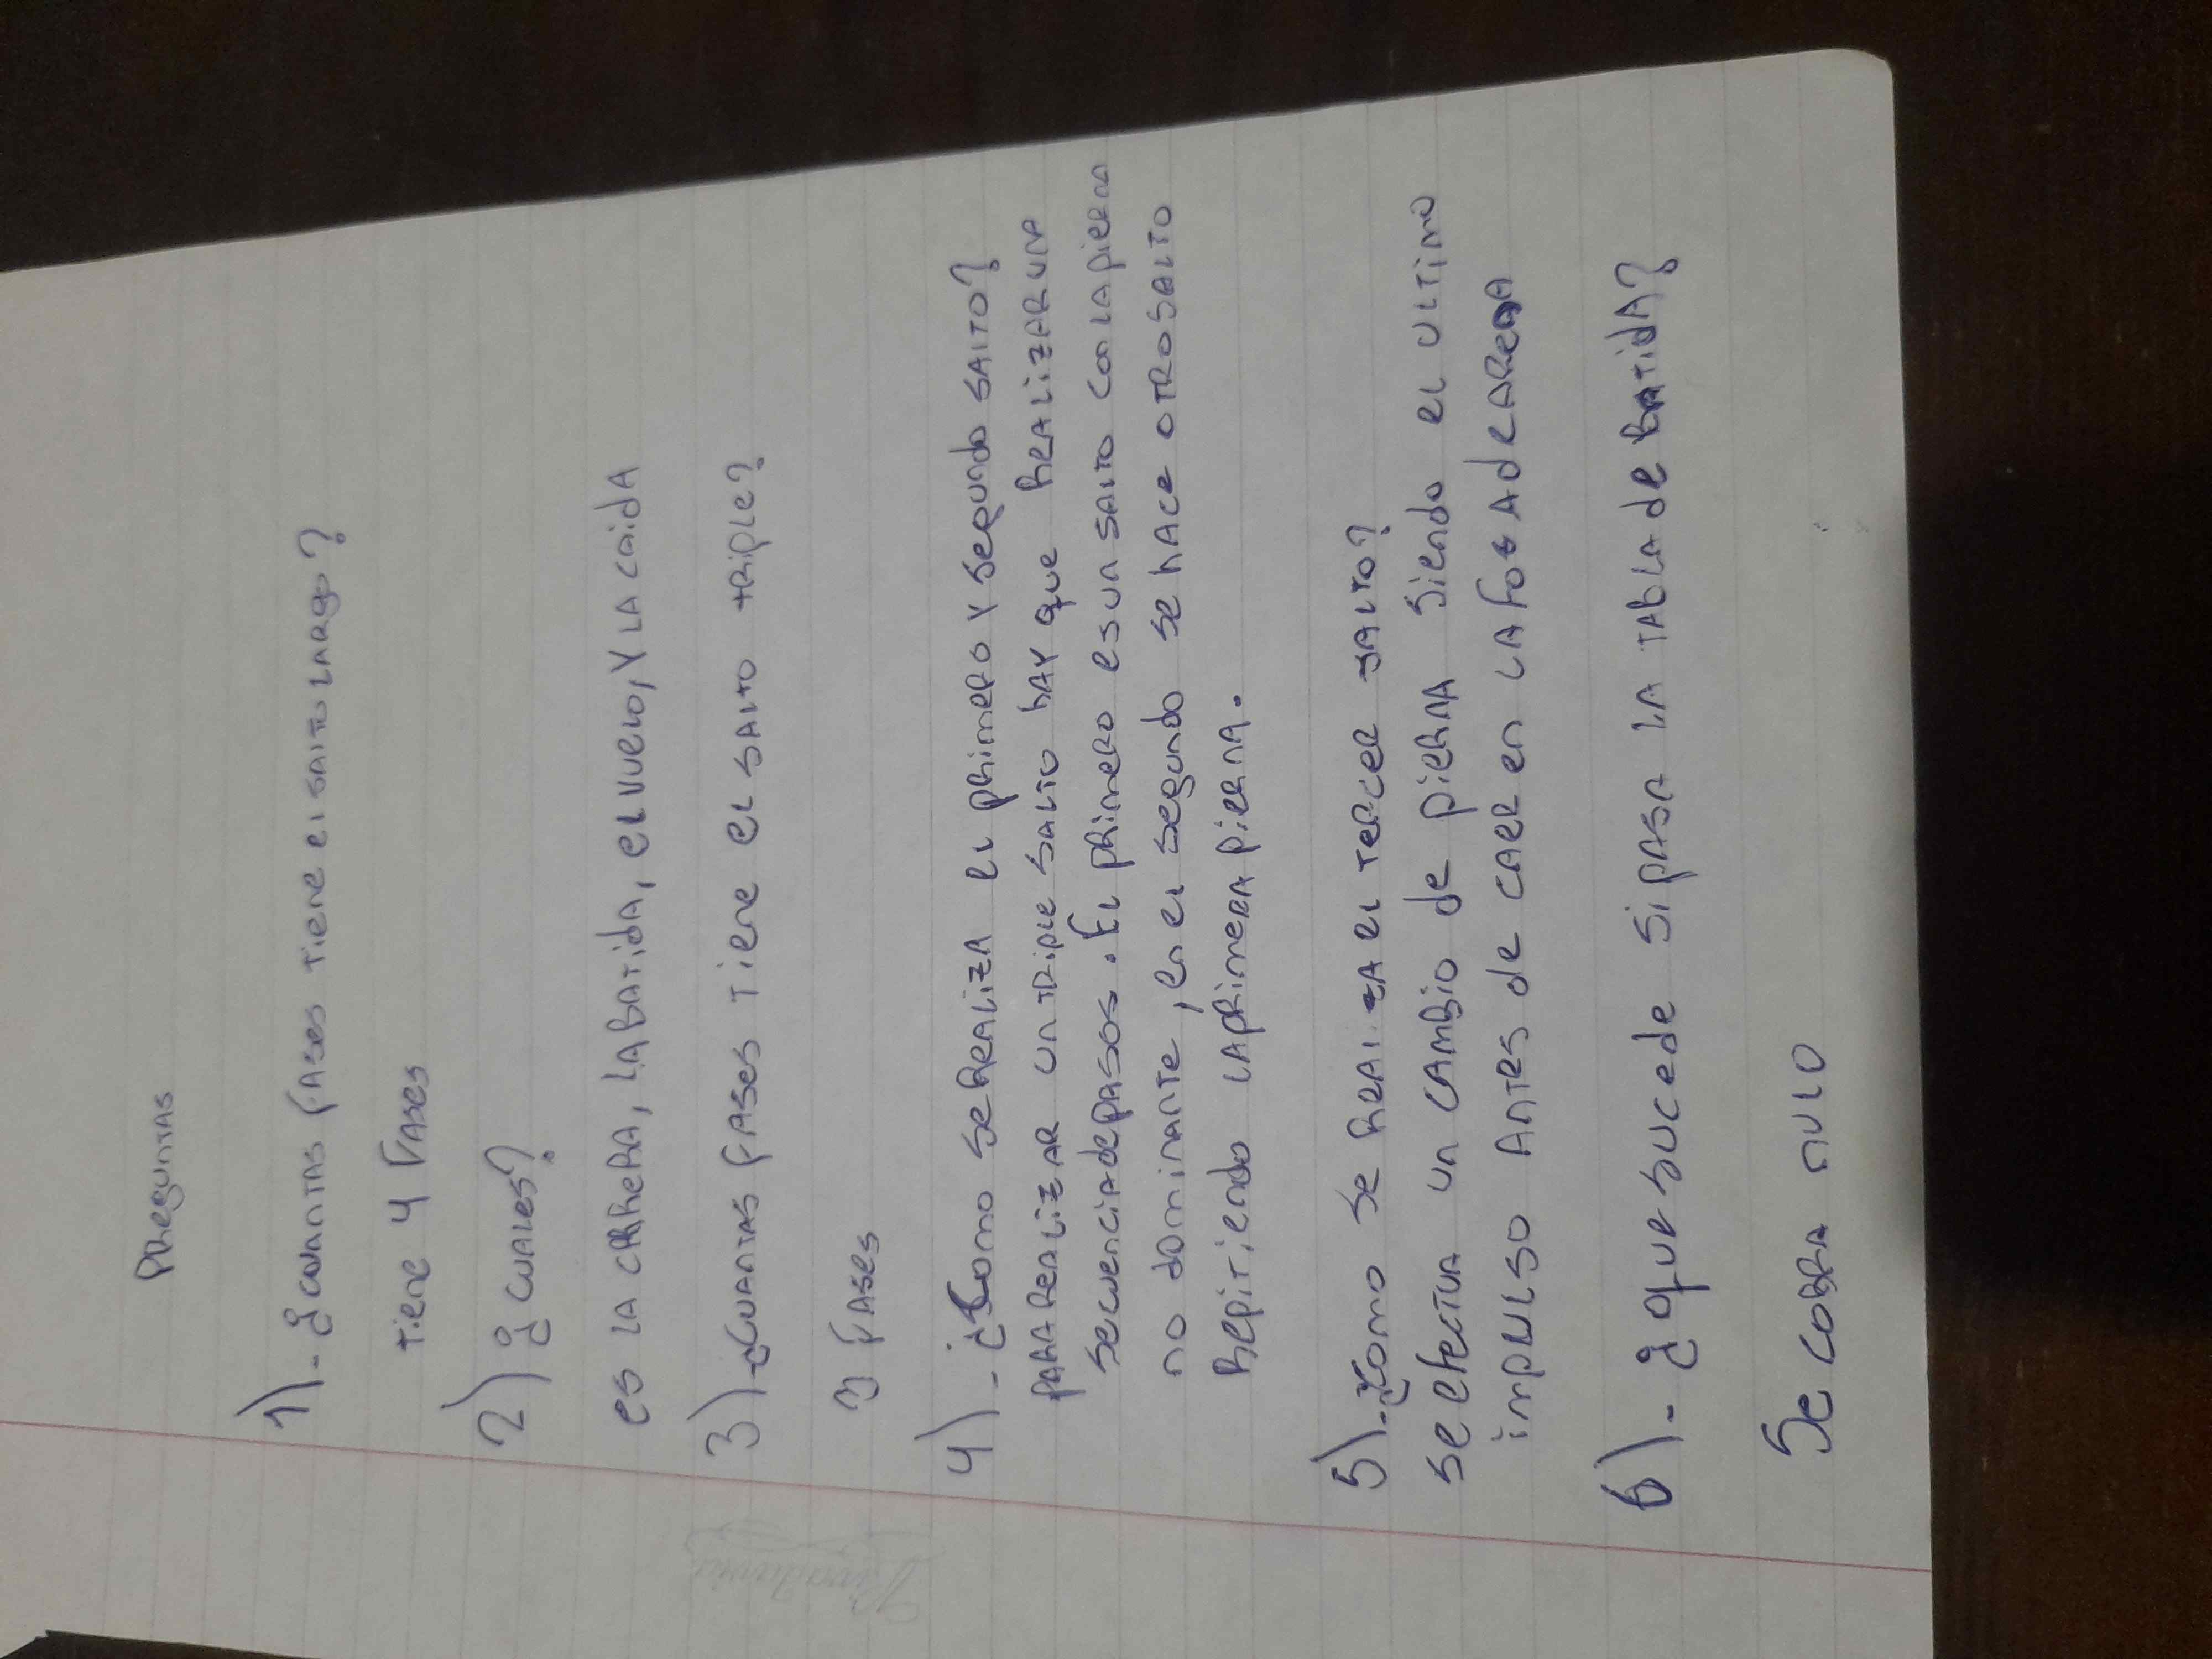 Preguntas
1)-¿cuantas fases tiene el salto largo?
tiene 4 fases
2)¿cuales?
es la carrera, la batida, el vuelo, y la caida
3)-¿cuantas fases tiene el salto triple?
3 fases
4)-¿Como se realiza el primero y segundo salto?
para realizar un triple salto hay que realizar una
secuencia de pasos. El primero es un salto con la pierna
no dominante, en el segundo se hace otro salto
repitiendo la primera pierna.
5)-¿Como se realiza el tercer salto?
se efectua un cambio de pierna siendo el ultimo
impulso antes de caer en la fosa de arena
6)-¿que sucede si pasa la tabla de batida?
Se cobra nulo
Rivadavia